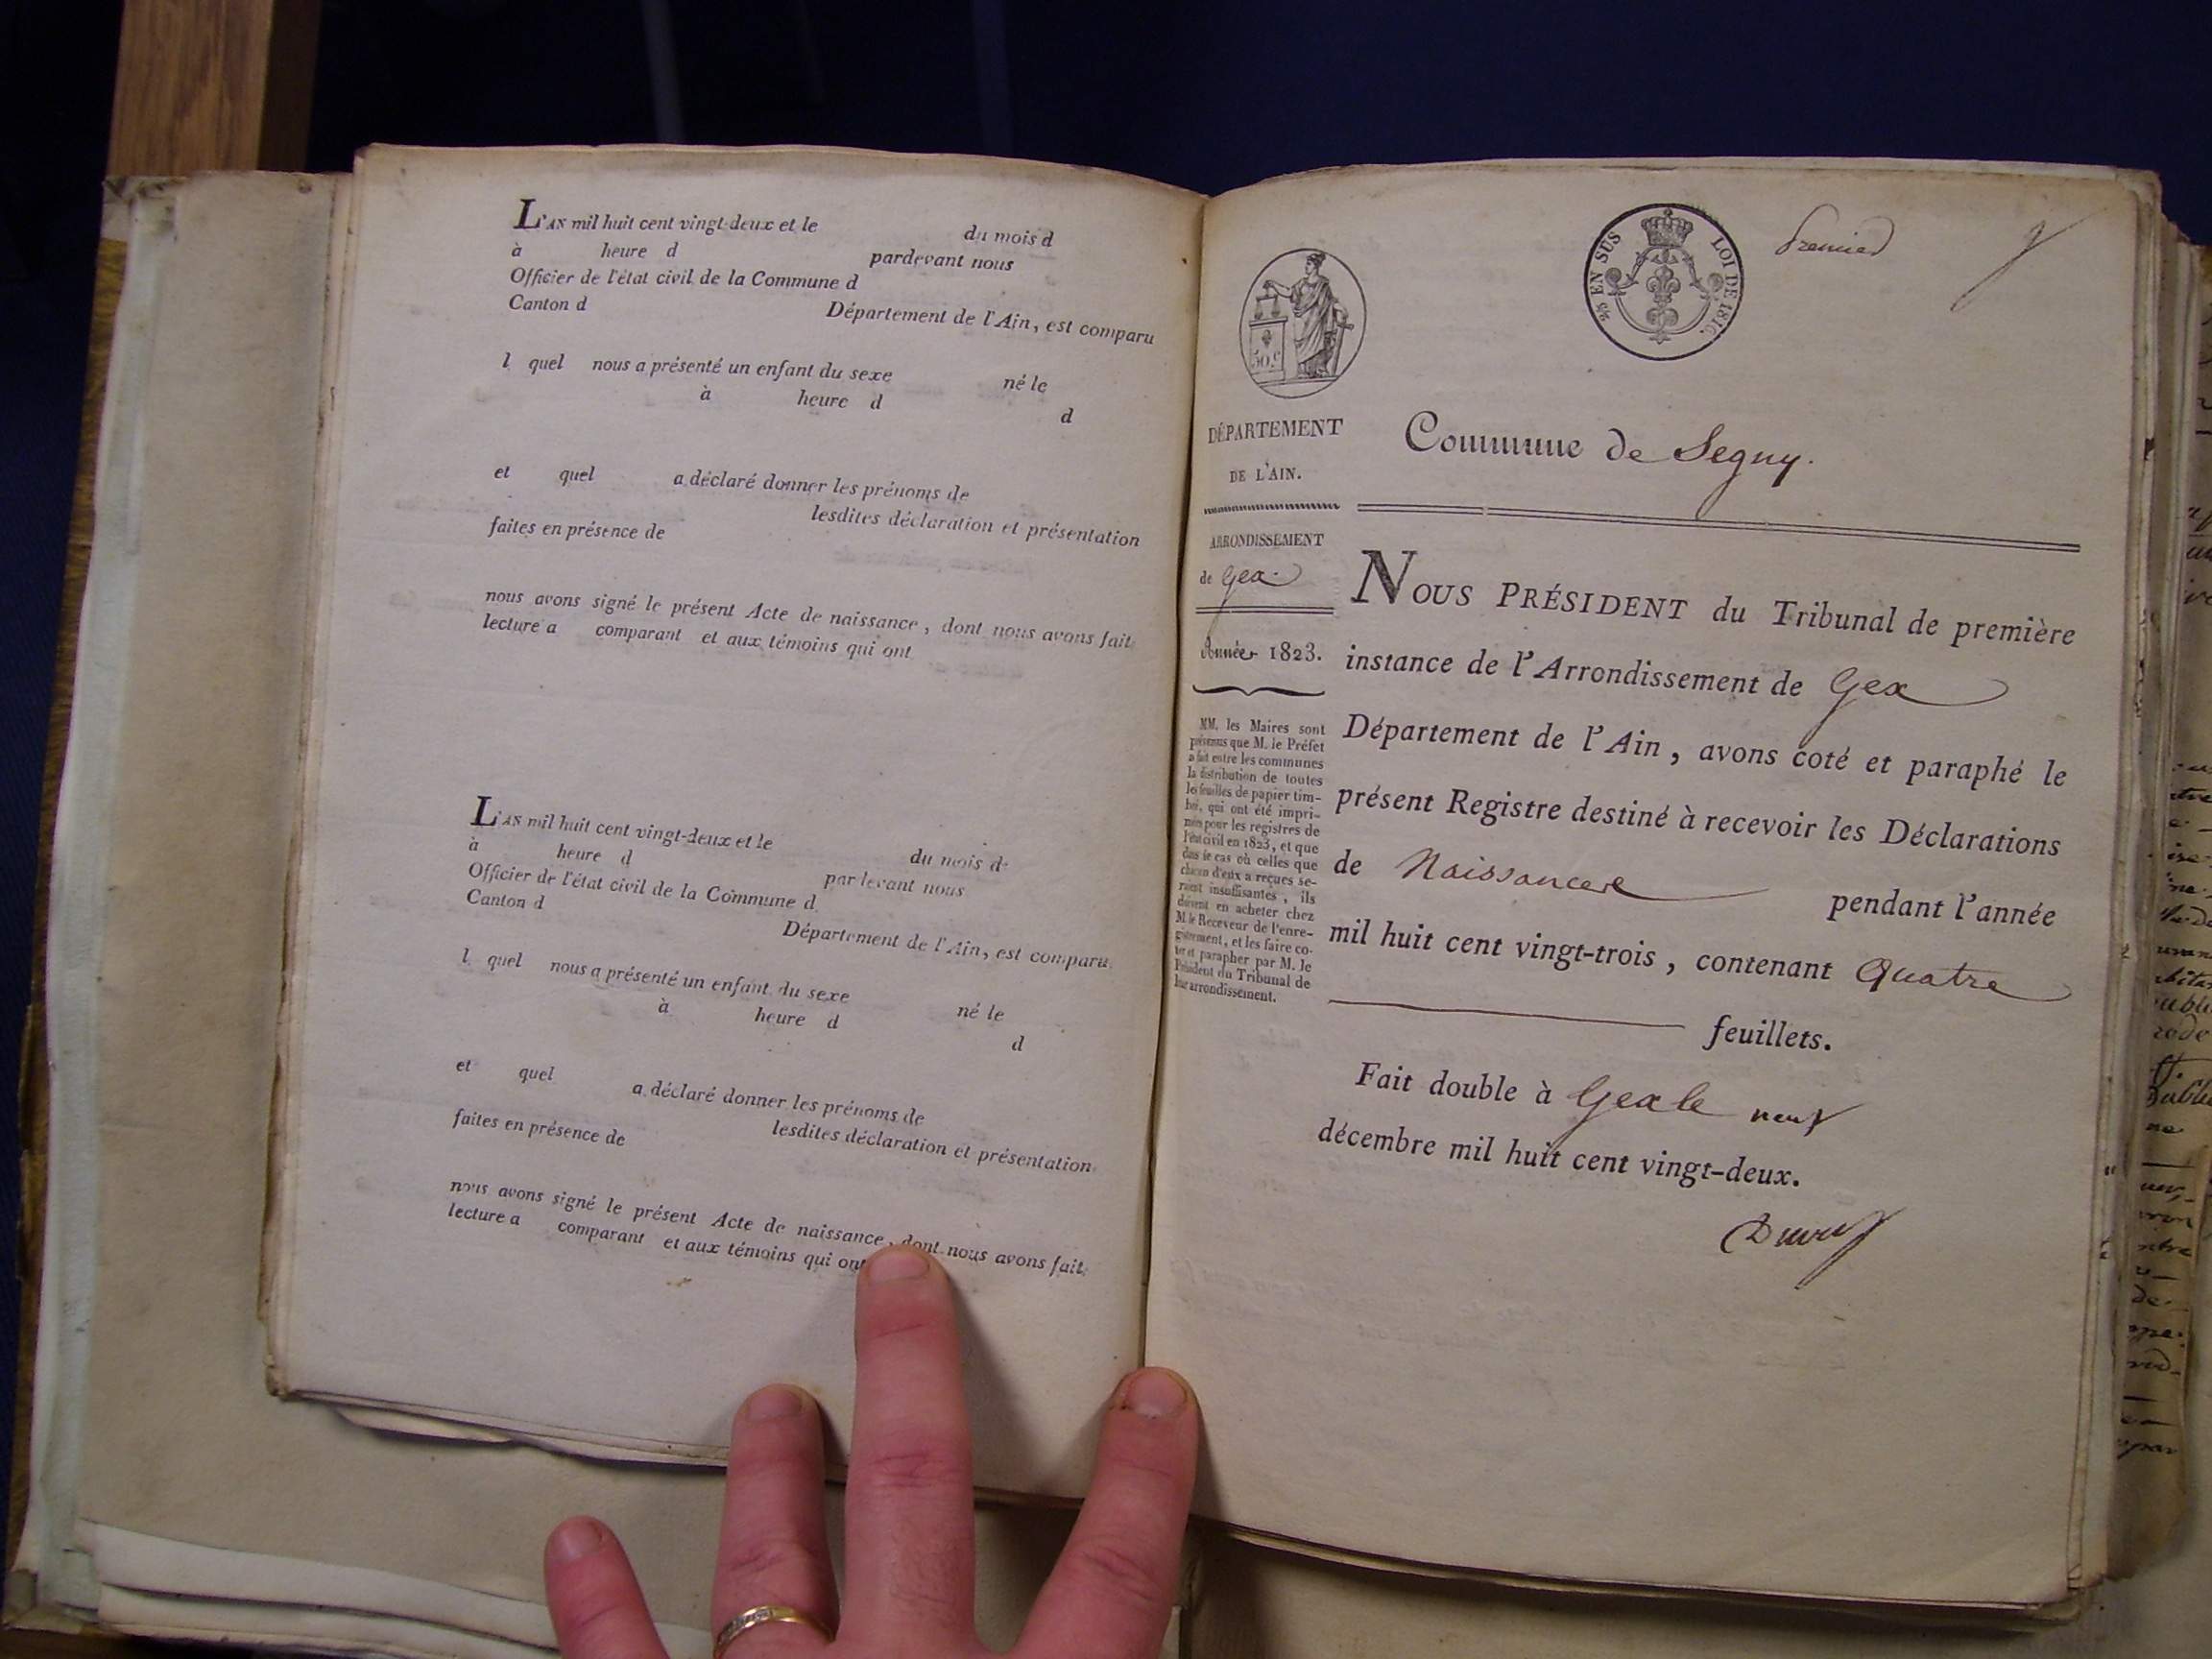 L'AN mil huit cent vingt-deux et le du mois d
à heure d pardevant nous
Officier de l'état civil de la Commune d
Canton d Département de l'Ain, est comparu
l quel nous a présenté un enfant du sexe né le
à heure d d
et quel a déclaré donner les prénoms de
lesdites déclaration et présentation
faites en présence de
nous avons signé le présent Acte de naissance, dont nous avons fait
lecture a comparant et aux témoins qui ont
L'AN mil huit cent vingt-deux et le du mois d
à heure d pardevant nous
Officier de l'état civil de la Commune d
Canton d Département de l'Ain, est comparu
l quel nous a présenté un enfant du sexe né le
à heure d d
et quel a déclaré donner les prénoms de
lesdites déclaration et présentation
faites en présence de
nous avons signé le présent Acte de naissance, dont nous avons fait
lecture a comparant et aux témoins qui ont
50 c
EN SUS LOI DE 1816.
Premier
DÉPARTEMENT
DE L'AIN.
ARRONDISSEMENT
de Gex
Année 1823.
MM. les Maires sont
prévenus que M. le Préfet
a fait entre les communes
la distribution de toutes
les feuilles de papier tim-
bré, qui ont été impri-
mées pour les registres de
l'état civil en 1823, et que
dans le cas où celles que
chacun d'eux a reçues se-
raient insuffisantes, ils
doivent en acheter chez
M. le Receveur de l'enre-
gistrement, et les faire co-
ter et parapher par M. le
Président du Tribunal de
leur arrondissement.
Commune de Segny.
NOUS PRÉSIDENT du Tribunal de première
instance de l'Arrondissement de Gex
Département de l'Ain, avons coté et paraphé le
présent Registre destiné à recevoir les Déclarations
de Naissance pendant l'année
mil huit cent vingt-trois, contenant Quatre
feuillets.
Fait double à Gex le neuf
décembre mil huit cent vingt-deux.